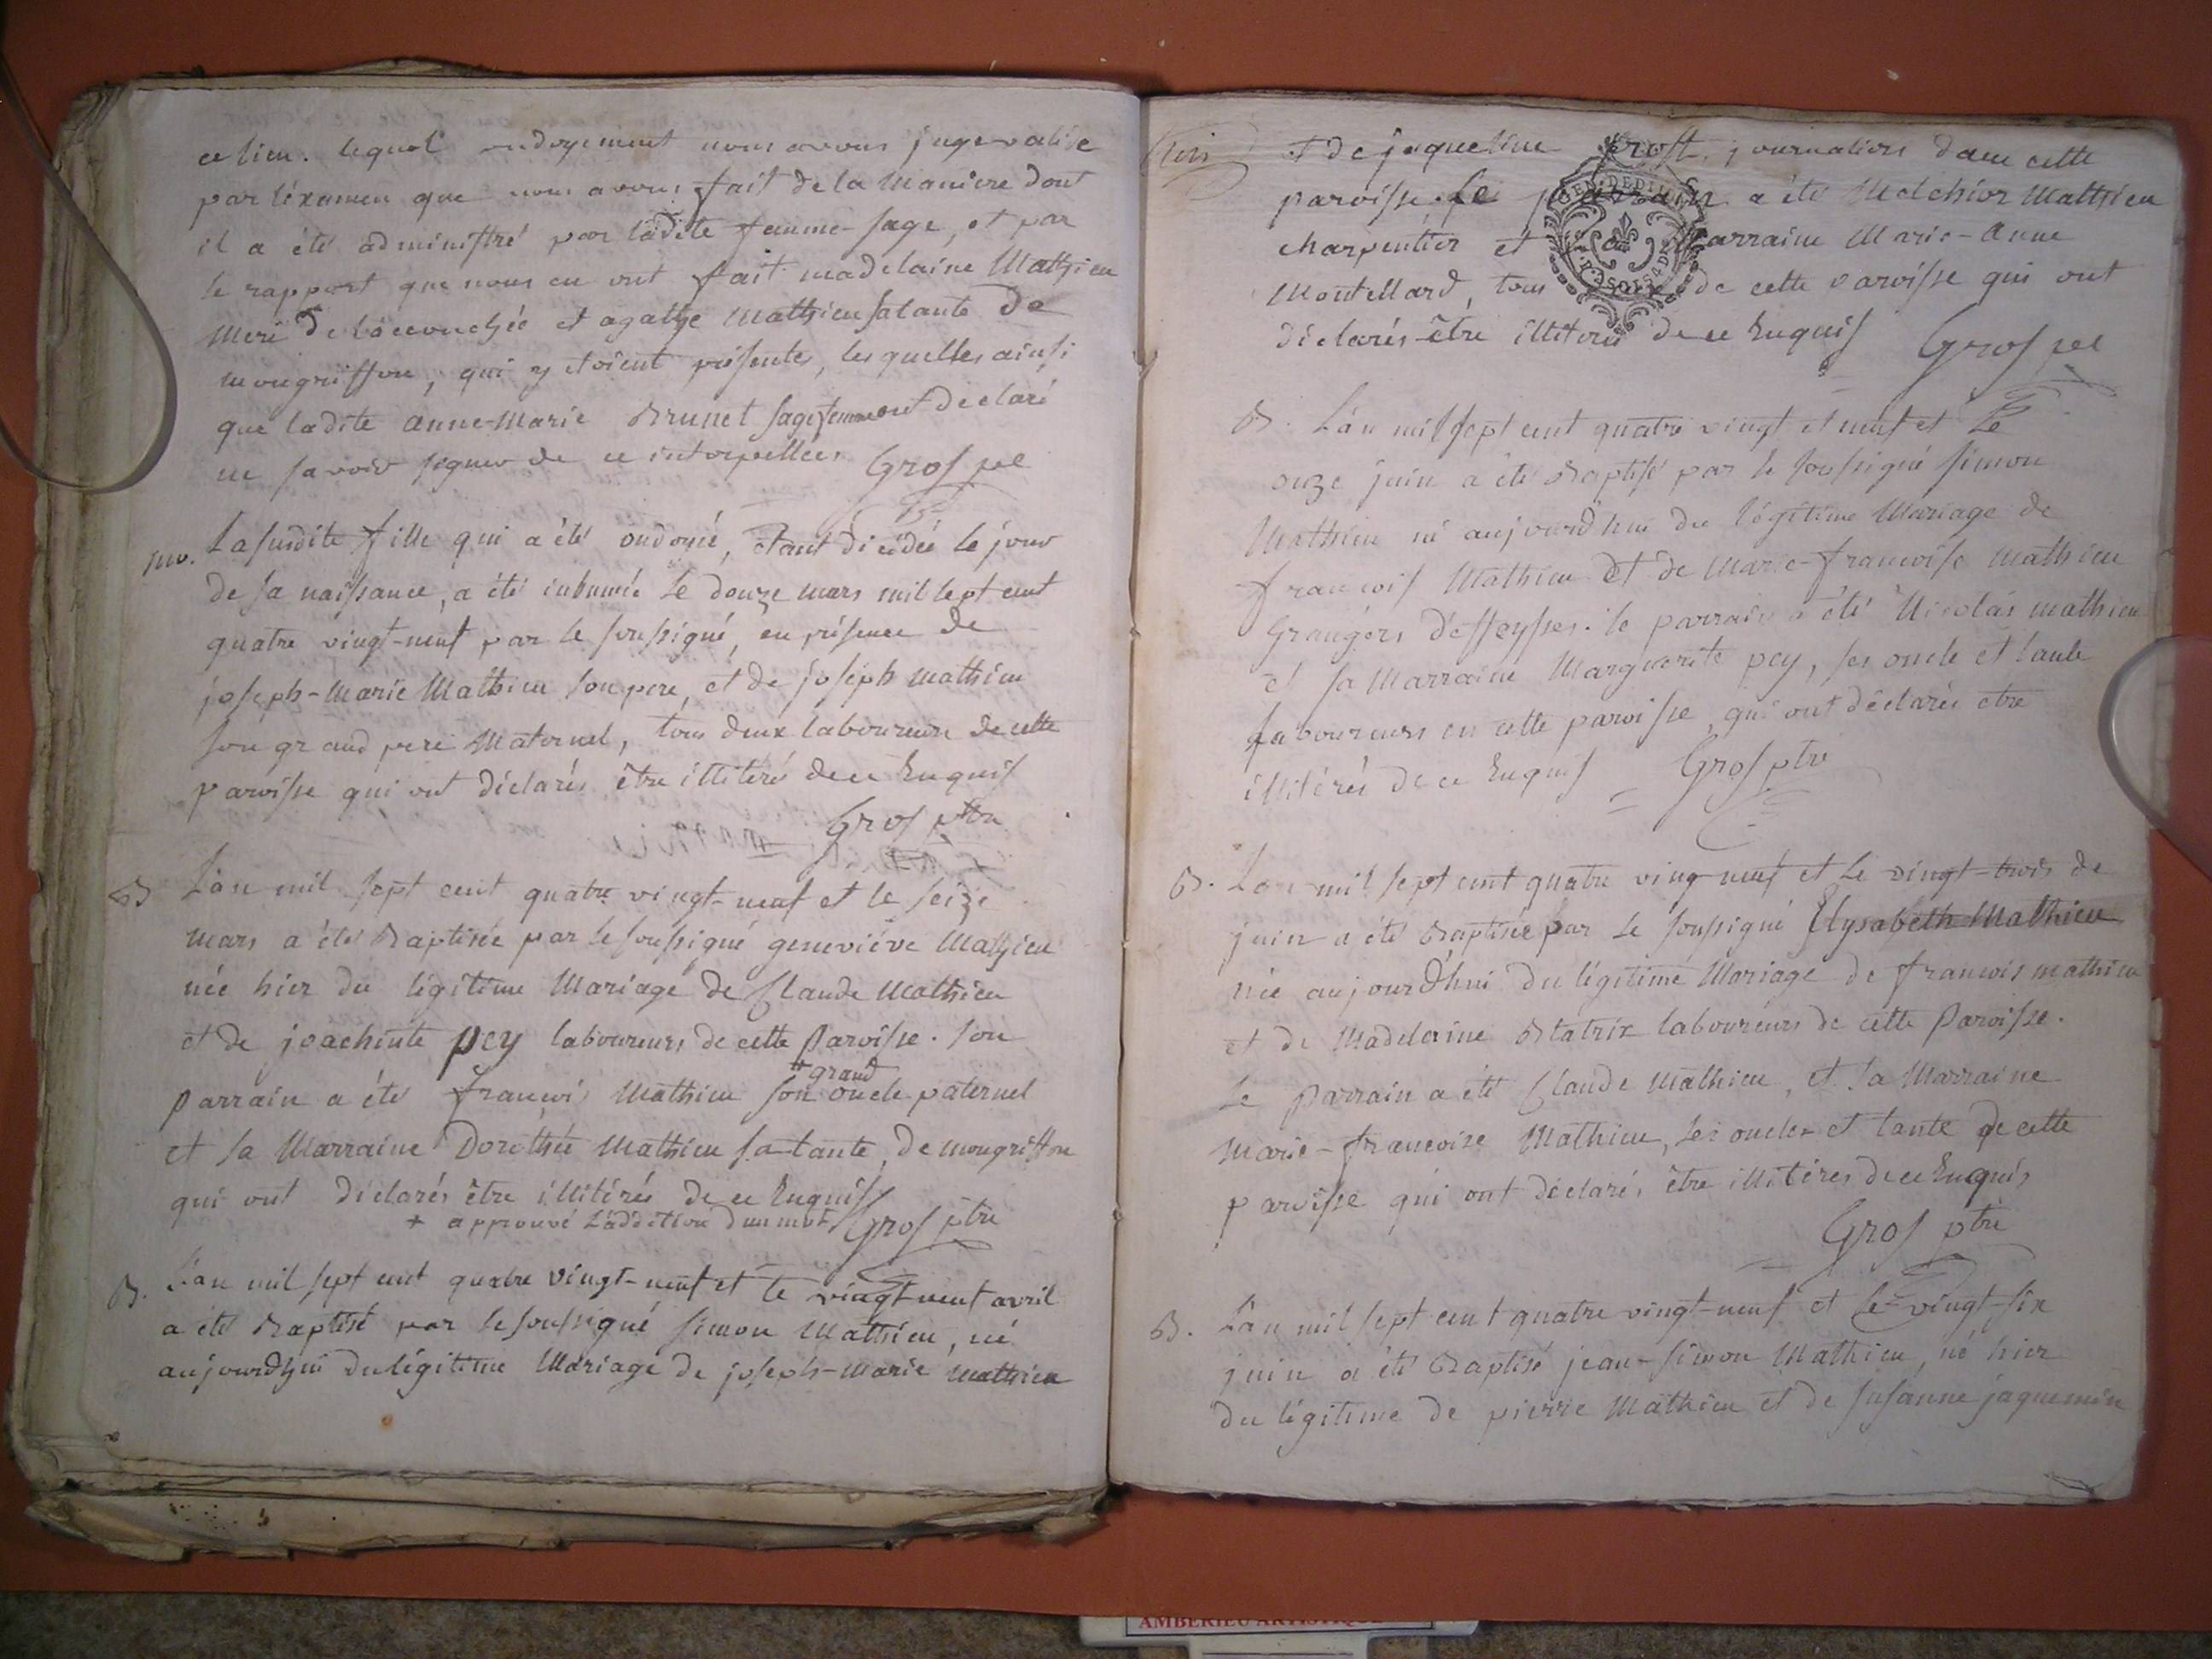 ce lieu. lequel ondoyement nous avons jugé valide
par léxamen que nous avons fait de la Maniere dont
il a été administré par ladite femme-sage, et par
le rapport que nous en ont fait madelaine Mathieu
Mere de laccouchée et agathe Mathieu sa tante de
mongriffon, qui y étoient présente, lesquelles ainsi
que ladite anne-Marie Brunet sage femme ont déclaré
ne savoir signer de ce interpellées Gros
La susdite fille qui a été ondoiée, étant décédée le jour
de sa naissance, a été inhumée le douze mars mil sept cent
quatre vingt-neuf par le soussigné, en présence de
joseph-Marie Mathieu son pere, et de joseph mathieu
son grand pere Maternel, tous deux laboureurs de cette
paroisse qui ont déclarés être illitérés de ce Enquis
Gros ptre
B L'an mil sept cent quatre vingt-neuf et le seize
mars a été Baptisée par le soussigné geneviéve Mathieu
née hier du légitime Mariage de Claude Mathieu
et de joachinte pey laboureurs de cette Paroisse. son
grand
parrain a été francois Mathieu son oncle paternel
et sa Marraine Dorothée Mathieu sa tante, de mongriffon
qui ont déclarés être illitérés de ce Enquis
+ approuvé L'addition d'un mot Gros ptre
B. L'an mil sept cent quatre vingt-neuf et le vingt-neuf avril
a été Baptisé par le soussigné simon Mathieu, né
aujourdhui du légitime Mariage de joseph-marie mathieu
et de jaqueline prost, journaliers dans cette
paroisse. Le parrain a été Melchior Mathieu
charpentier et la Marraine Marie-Anne
Montellard, tous de cette paroisse qui ont
déclarés être illiterés de ce Enquis Gros
B. L'an mil sept cent quatre vingt et neuf et Le
onze juin a été Baptisé par le soussigné simon
Mathieu né aujourdhui du légitime Mariage de
francois Mathieu et de Marie-francoise Mathieu
Grangers d'esseysses. le parrain a été Nicolas mathieu
et sa Marraine Marguerite pey, ses oncle et tante
laboureurs en cette paroisse, qui ont déclarés etre
illitérés de ce Enquis Gros ptre
B. L'an mil sept cent quatre vingt neuf et Le vingt-trois de
juin a été Baptisée par Le soussigné Elysabeth Mathieu
née aujourd'hui du légitime Mariage de francois mathieu
et de Madelaine Btatrix laboureurs de cette Paroisse.
Le Parrain a été Claude Mathieu, et sa Marraine
Marie-francoise Mathieu, ses oncle et tante de cette
paroisse qui ont déclarés être illitérés de ce Enquis
Gros ptre
B. L'an mil sept cent quatre vingt-neuf et le vingt-six
juin a été Baptisé jean-simon Mathieu, né hier
du légitime de pierre Mathieu et de susanne jaquemin
AMBERIEU